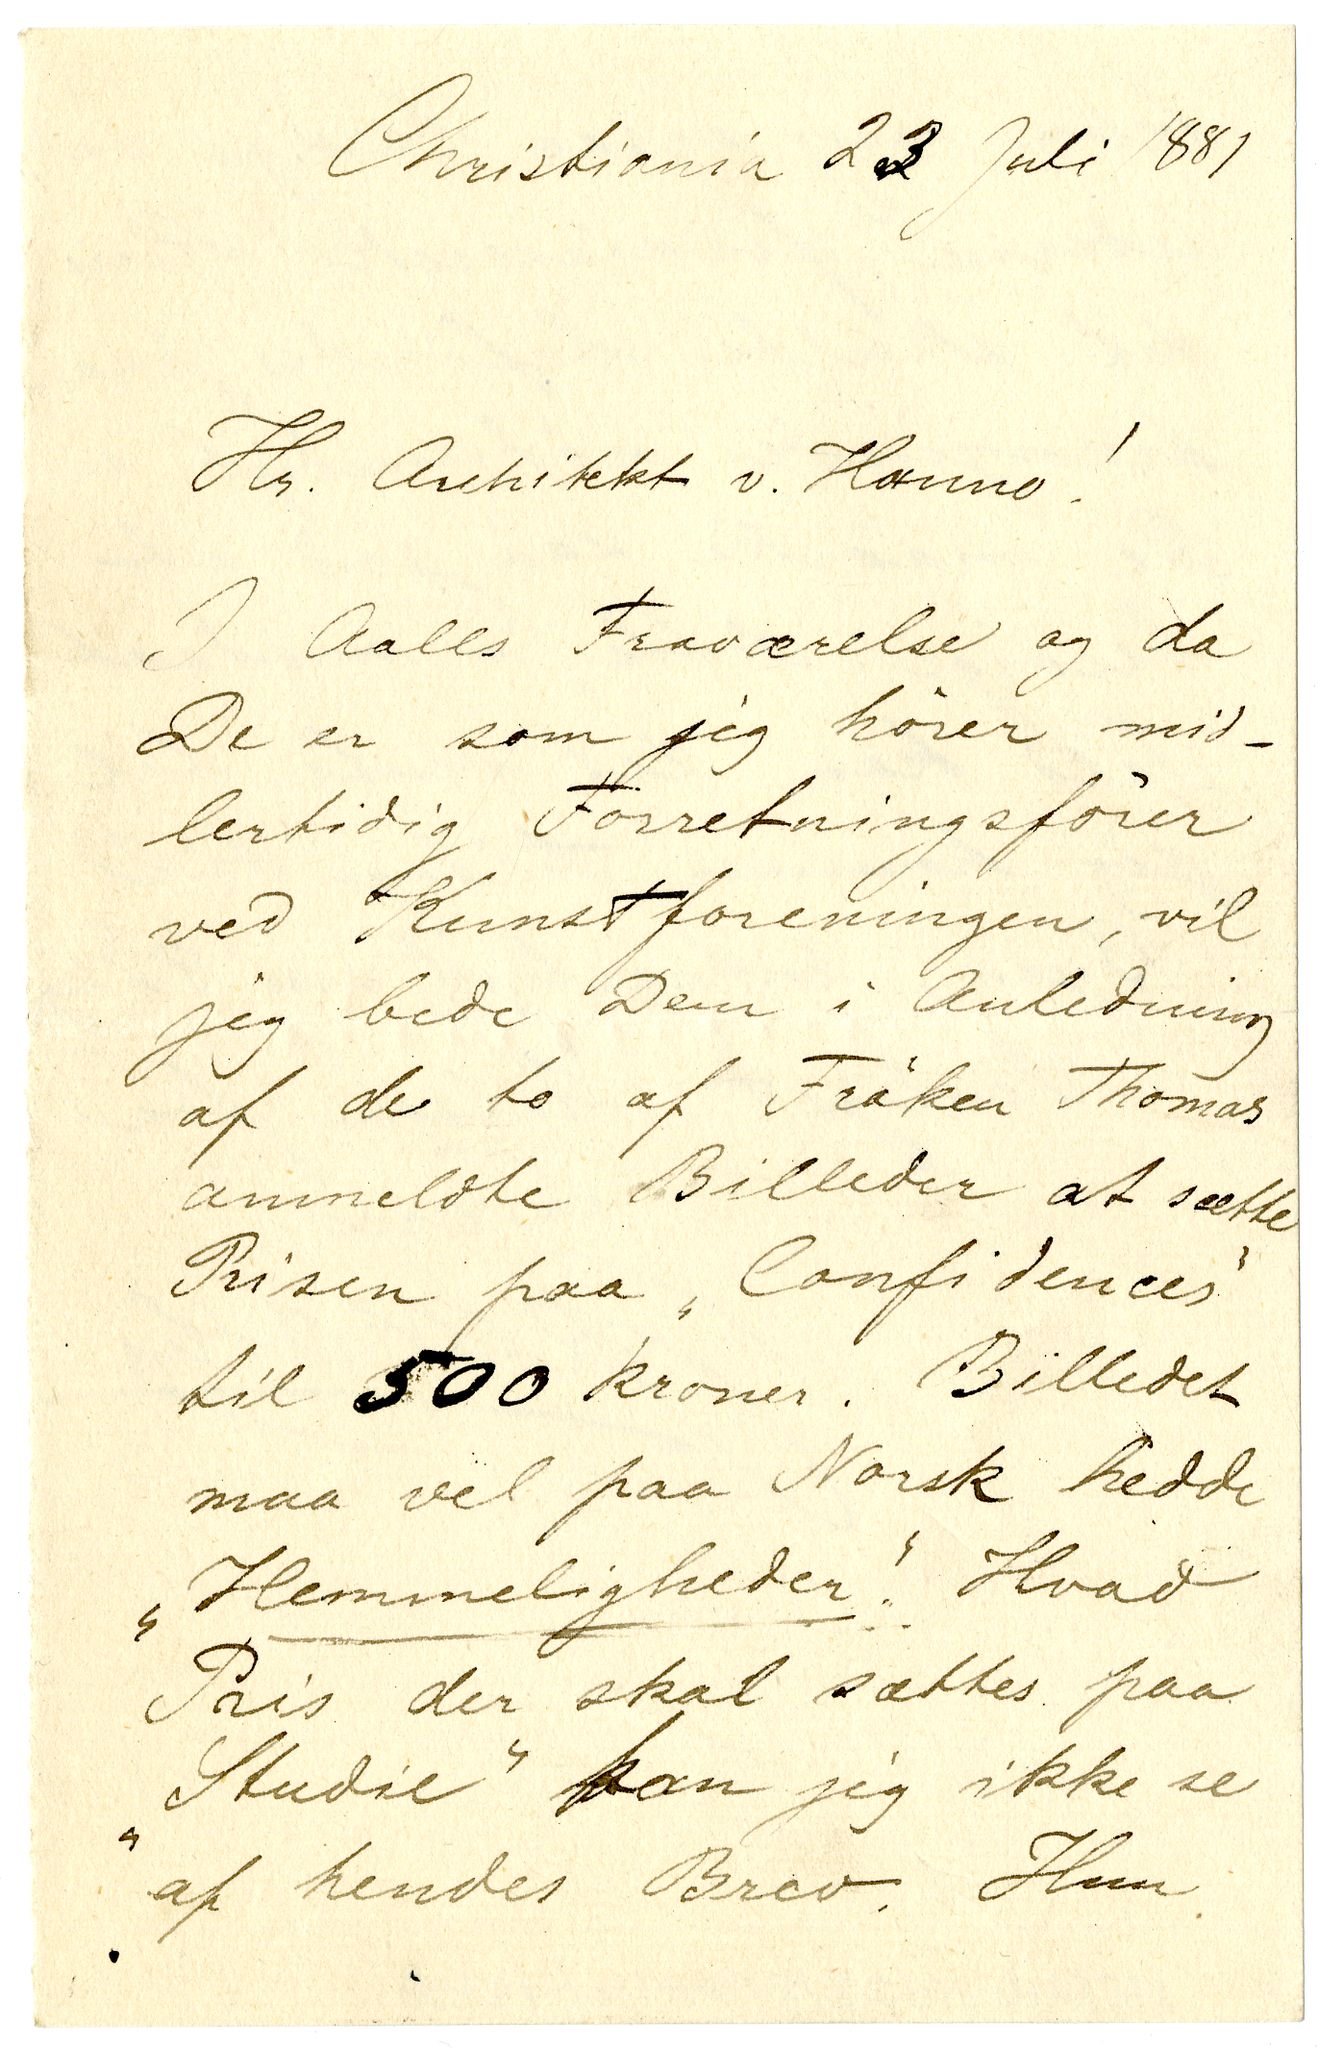 Christiania 23 Juli 1881
Hr. Architekt v. Hanno!
I Aalls Fraværelse og da
De er som jeg hörer mid-
lertidig Forretningsförer
ved Kunstforeningen, vil
jeg bede Dem i Anledning
af de to af Fröken Thomas
anmeldte Billeder at sætte
Prisen paa „Confidences“
til 500 kroner. Billedet
maa vel paa Norsk hedde
„Hemmeligheder“. Hvad
Pris der skal sættes paa
„Studie“ kan jeg ikke se
af hendes Brev. Hun